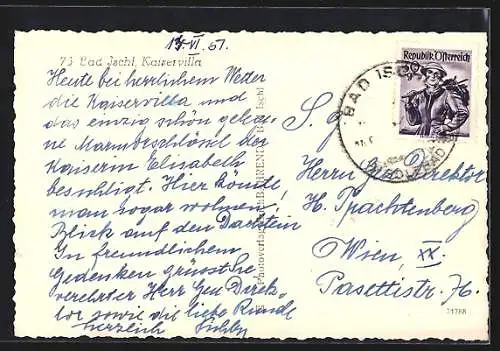 13.VI.51.
73 Bad Jschl, Kaiservilla
Heute bei herrlichem Wetter
die Kaiservilla und
das einzig schön gelege
ne Marmorschlössl der
Kaiserin Elisabeth
besichtigt. Hier könnte
man sogar wohnen!
Blick auf den Dachstein
In freundlichem
Gedenken grüsst Sie
verehrter Herr Gen Direk-
tor sowie die liebe Runde
herzlich
Photoverlag
Republik Österreich
BAD ISCHL
S. g.
Herrn Direktor
H. Trachtenberg
Wien, XX.
Pasettistr. 76.
31788